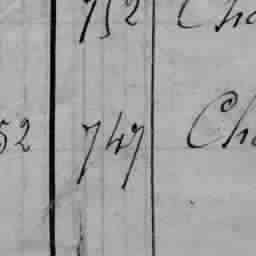 752 Ch
52 747 Ch